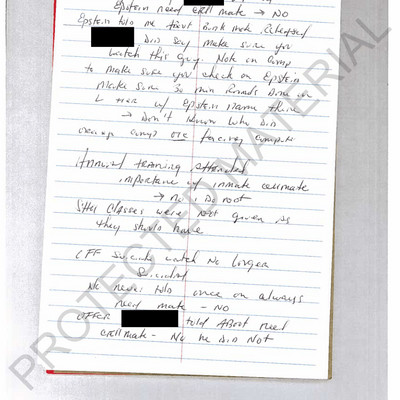 Epstein need cell mate → NO
Epstein told me about Bunk mate
Did say make sure you
watch this guy. Note on comp
to make sure you check on Epstein
make sure 30 min rounds Done on
L tier w/ Epstein name
→ Don't know who did
Annual training attended
importance of inmate cellmate
→ no, I do not
Classes were not given as
they should have
OFF suicide watch No longer
Suicidal
No never told once on always
need mate - NO
OFFER told About need
cell mate - No he Did Not
PROTECTED MATERIAL